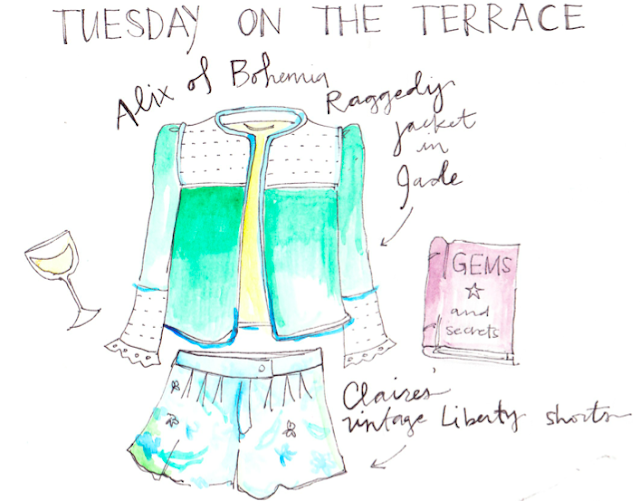 TUESDAY ON THE TERRACE
Alix of Bohemia
Raggedy
jacket
in
Jade
GEMS
and
secrets
Claires
vintage Liberty shorts